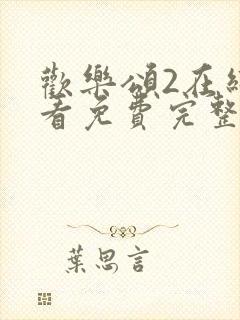 歡樂頌2在線
看免費完整
葉思言